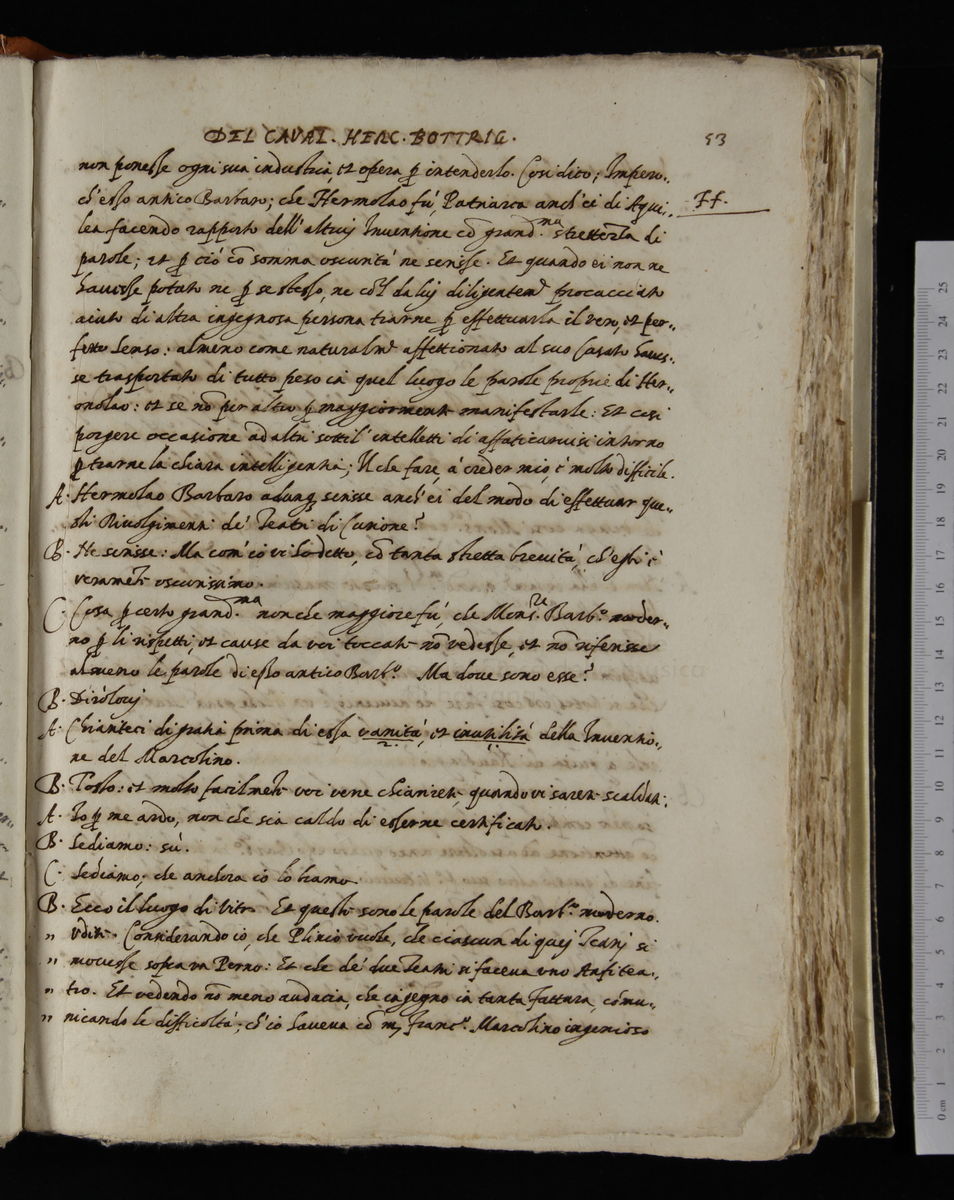 DEL CAVAL. HERC. BOTTRIG.
53
non ponesse ogni sua industria, et opera p intenderlo. Cosi dico; Impero..
ch'esso antico Barbaro; che Hermolao fú, Patriarca anch'ei di Aqui..
Ff.
lea facendo rapporto dell'altruj Inventione cō grand.ma strettezza di
parole; et p ció cō somma oscuritá ne scrisse. Et quando ei non ne
havesse potuto ne p se stesso, ne co'l da luj diligentemte procacciato
aiuto di altra ingegnosa persona trarne p effettuarla il vero, et per..
fetto senso: almeno come naturalmte affettionato al suo Casato haves..
se trasportato di tutto peso in quel luogo le parole proprie di Her..
molao: et se nō per altro p maggiormente manifestarle: Et cosi
porgere occasione ad altri sottili intelletti di affaticarvisi intorno
p trarne la chiara intelligentia; Il che fare, á creder mio, é molto difficile.
A. Hermolao Barbaro adunq scrisse anch'ei del modo di effettuar que..
sti Rivolgimenti de' Teatri di Curione?
B. Ne scrisse: Ma com'io vi ho detto, cō tanta stretta brevitá, ch'egli é
veramēte oscurissimo.
C. Cosa p certo grand.ma non che maggiore fú, che Mons.re Barb.o moder..
no p li rispetti, et cause da voi toccate nō vedesse, et nō riferisse
almeno le parole di esso antico Barb.o Ma dove sono esse?
B. Dirólovj
A. Chiariteci di gratia prima di essa vanitá, et inutilitá della Inventio..
ne del Marcolino.
B. Tosto: et molto facilmēte voi vene chiarirete, quando vi sarete scaldati.
A. Io p me ardo, non che sia caldo di esserne certificato.
B. Sediamo: sú.
C. Sediamo; che anchora io lo bramo.
B. Ecco il luogo di Vitr. Et queste sono le parole del Barb.o moderno.
" Udite. Considerando io, che Plinio vuole, che ciascun di quej Teatrj si
" movesse sopra un Perno: Et che de' due Teatri si faceva uno Anfitea..
" tro. Et vedendo nō meno audacia, che ingegno in tanta fattura, cōmu..
" nicando le difficoltá; ch'io haveva cō m. Franc.o Marcolino ingenioso